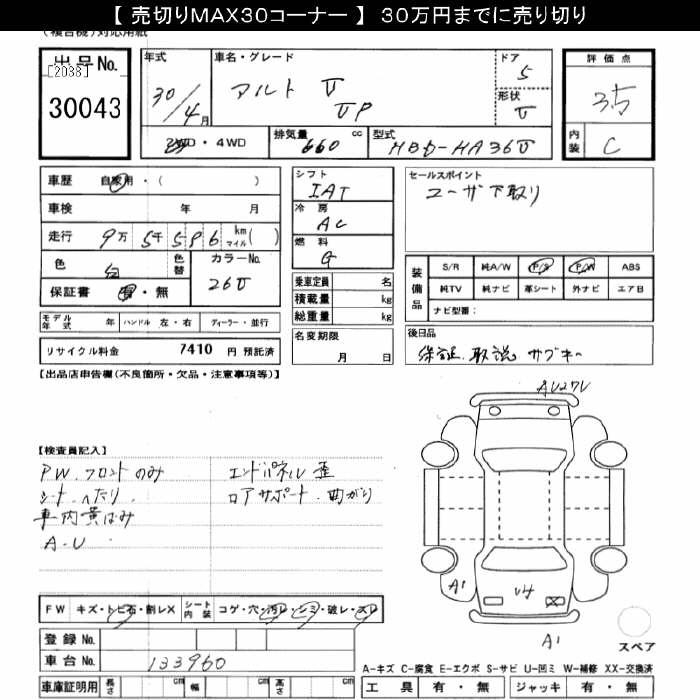 【 売切りMAX30コーナー 】 30万円までに売り切り
(複合機)対応用紙
出品No.
[2038]
30043
年式
30/4月
車名・グレード
アルト V
VP
ドア
5
形状
V
評価点
3.5
内装
C
2WD・4WD
排気量 660 cc
型式 HBD-HA36V
車歴 自家用・( )
車検 年 月
走行 9万 5千 5 8 6 km マイル( )
色 白 色替
カラーNo.
26U
保証書 有・無
モデル年式 年 ハンドル 左・右 ディーラー・並行
リサイクル料金 7410 円 預託済
シフト
IAT
冷房
AC
燃料
G
乗車定員 名
積載量 kg
総重量 kg
名変期限
月 日
セールスポイント
ユーザ下取り
装備品
S/R 純A/W P/S P/W ABS
純TV 純ナビ 革シート 外ナビ エアB
ナビ型番：
後日品
保証.取説 サブキー
【出品店申告欄(不良箇所・欠品・注意事項等)】
【検査員記入】
PW.フロントのみ
シート.へたり.
車内黄ばみ
A-U
エンドパネル歪
ロアサポート.曲がり
AU27V
A1
U4
A1
スペア
FW キズ・トビ石・割レX
シート内装 コゲ・穴・汚レ・シミ・破レ・スレ
登録No.
車台No. 133960
車庫証明用 長さ cm 幅 cm 高さ cm
A-キズ C-腐食 E-エクボ S-サビ U-凹ミ W-補修 XX-交換済
工具 有・無 ジャッキ 有・無